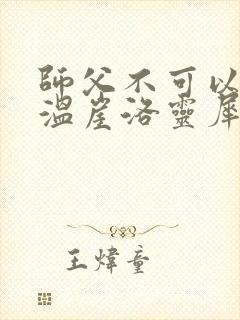 師父不可以
溫崖洛靈犀
王煒童